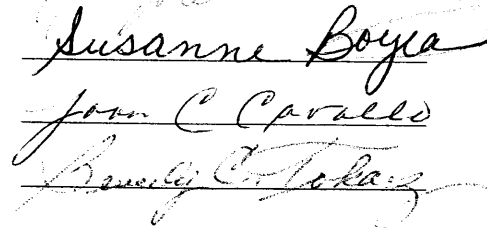 Susanne Boyea
Joan C Cavallo
Beverly Tokarz